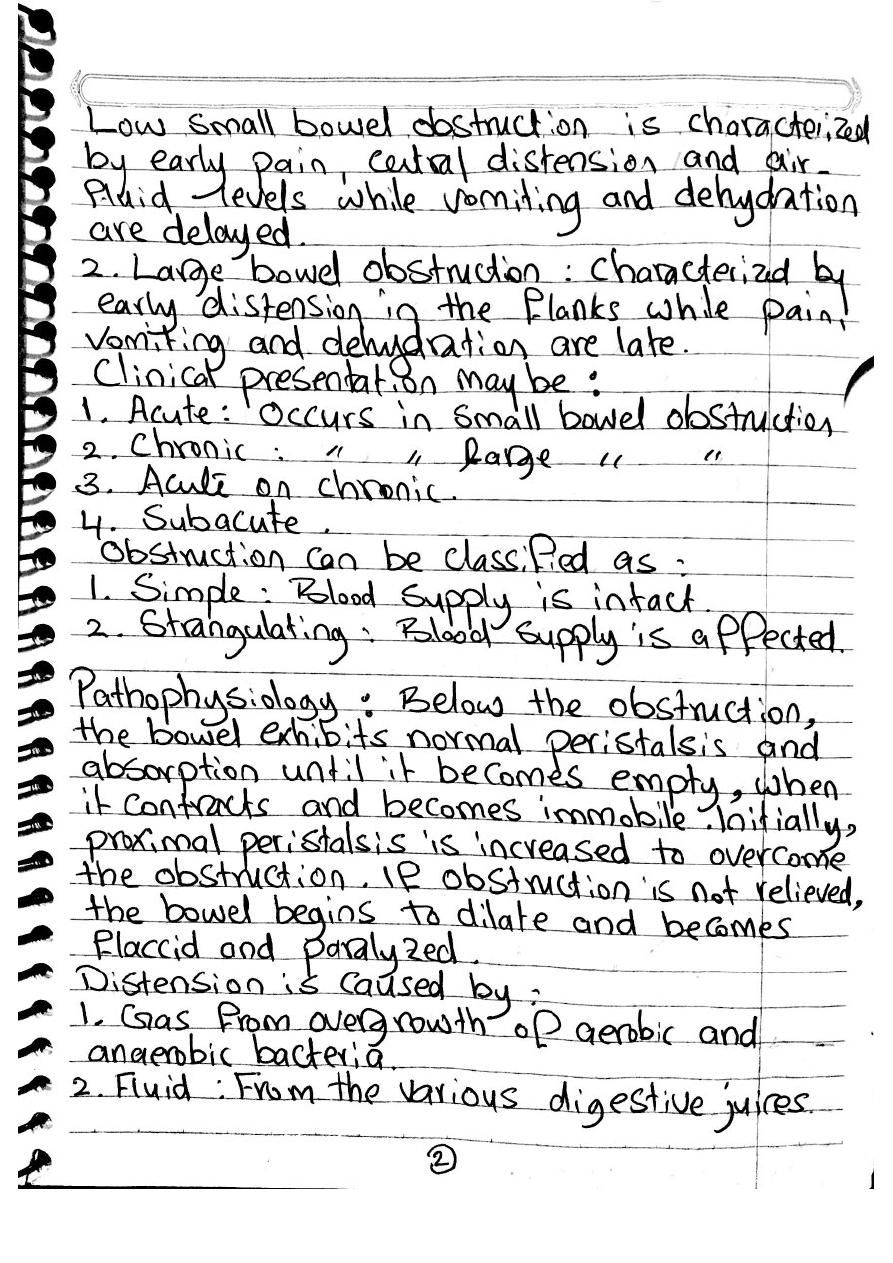 Low small bowel obstruction is characterized
by early pain, central distension and air-
fluid levels while vomiting and dehydration
are delayed.
2. Large bowel obstruction : Characterized by
early distension in the flanks while pain,
vomiting and dehydration are late.
Clinical presentation may be :
1. Acute : Occurs in small bowel obstruction
2. Chronic : " " large " "
3. Acute on chronic.
4. Subacute.
Obstruction can be classified as :
1. Simple : Blood supply is intact.
2. Strangulating : Blood supply is affected.
Pathophysiology : Below the obstruction,
the bowel exhibits normal peristalsis and
absorption until it becomes empty, when
it contracts and becomes immobile. Initially,
proximal peristalsis is increased to overcome
the obstruction. If obstruction is not relieved,
the bowel begins to dilate and becomes
flaccid and paralyzed.
Distension is caused by :
1. Gas from overgrowth of aerobic and
anaerobic bacteria.
2. Fluid : From the various digestive juices.
2